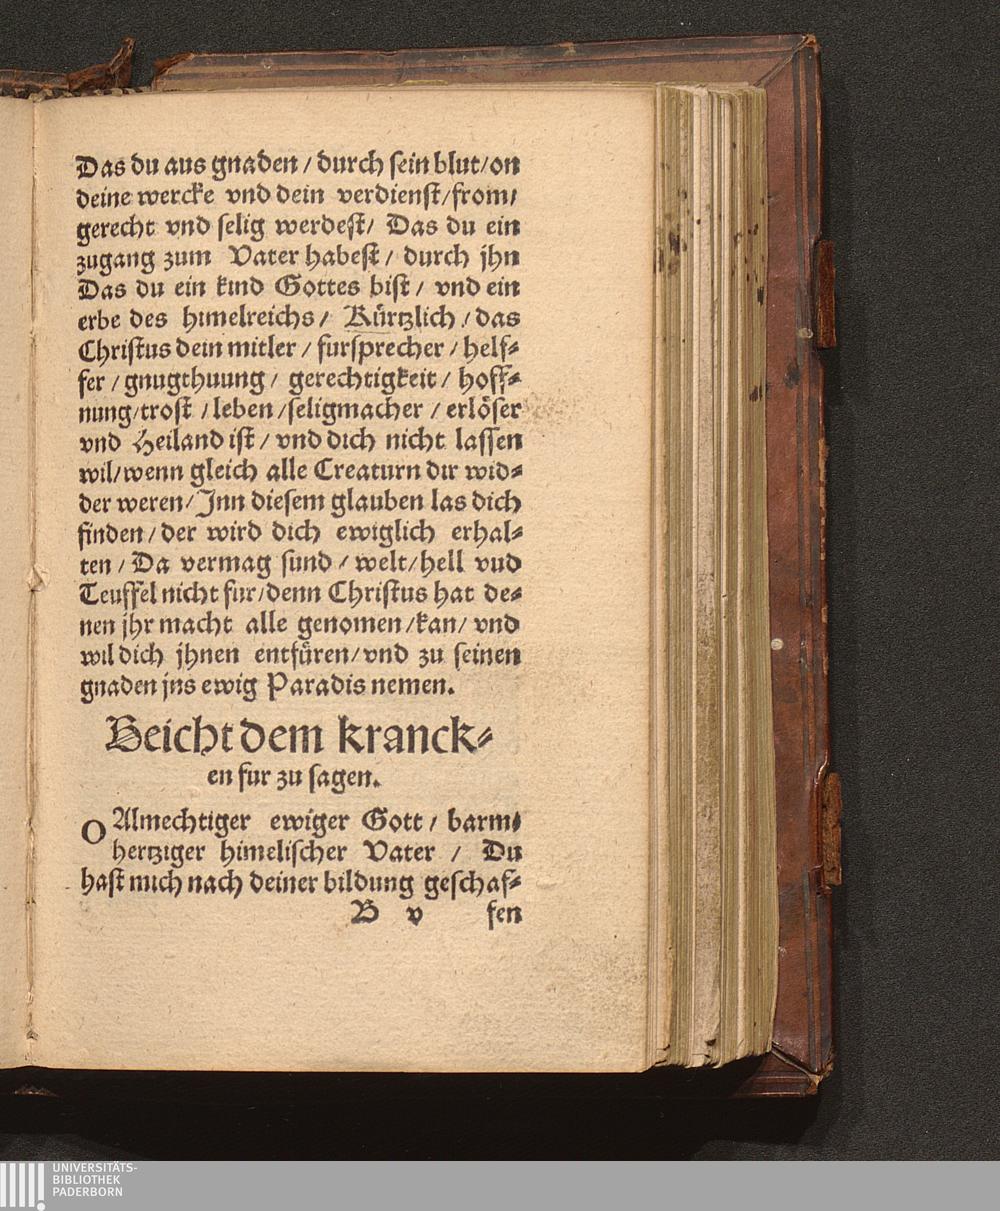 Das du aus gnaden / durch sein blut / on
deine wercke vnd dein verdienst / from /
gerecht vnd selig werdest / Das du ein
zugang zum Vater habest / durch jhn
Das du ein kind Gottes bist / vnd ein
erbe des himelreichs / Kürtzlich / das
Christus dein mitler / fursprecher / helf⸗
fer / gnugthuung / gerechtigkeit / hoff⸗
nung / trost / leben / seligmacher / erlöser
vnd Heiland ist / vnd dich nicht lassen
wil / wenn gleich alle Creaturn dir wid⸗
der weren / Inn diesem glauben las dich
finden / der wird dich ewiglich erhal⸗
ten / Da vermag sund / welt / hell vud
Teuffel nicht fur / denn Christus hat de⸗
nen jhr macht alle genomen / kan / vnd
wil dich jhnen entfüren / vnd zu seinen
gnaden jns ewig Paradis nemen.
Beicht dem kranck⸗
en fur zu sagen.
O Almechtiger ewiger Gott / barm⸗
hertziger himelischer Vater / Du
hast mich nach deiner bildung geschaf⸗
B v fen
UNIVERSITÄTS-
BIBLIOTHEK
PADERBORN